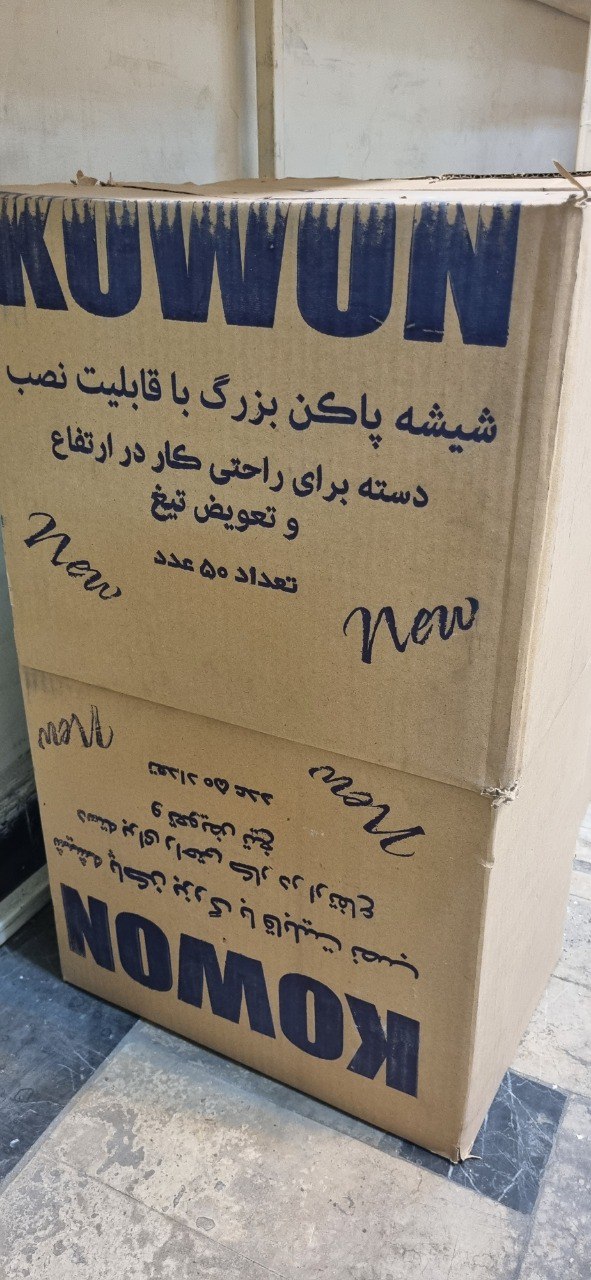 KOWON
شیشه پاکن بزرگ با قابلیت نصب
دسته برای راحتی کار در ارتفاع
و تعویض تیغ
تعداد ۵۰ عدد
New
New
New
New
تعداد ۵۰ عدد
و تعویض تیغ
دسته برای راحتی کار در ارتفاع
شیشه پاکن بزرگ با قابلیت نصب
KOWON